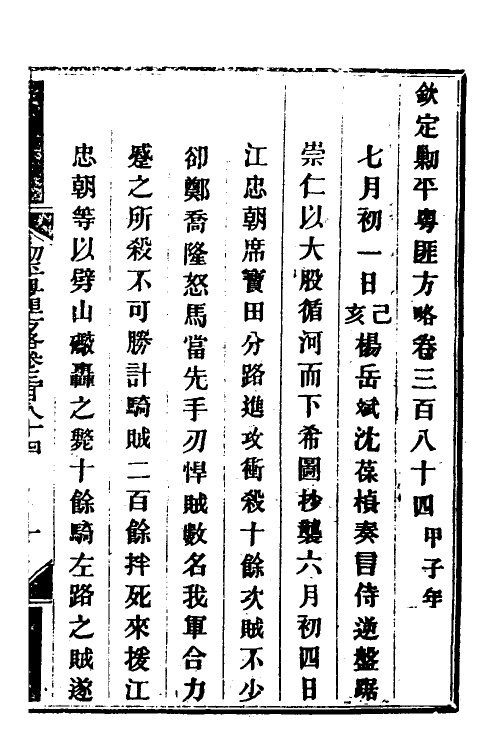 欽定勦平粵匪方略卷三百八十四甲子年
七月初一日己亥楊岳斌沈葆楨奏言侍逆盤踞
崇仁以大股循河而下希圖抄襲六月初四日
江忠朝席寶田分路進攻衝殺十餘次賊不少
卻鄭喬隆怒馬當先手刃悍賊數名我軍合力
蹙之所殺不可勝計騎賊二百餘拌死來援江
忠朝等以劈山礮轟之斃十餘騎左路之賊遂